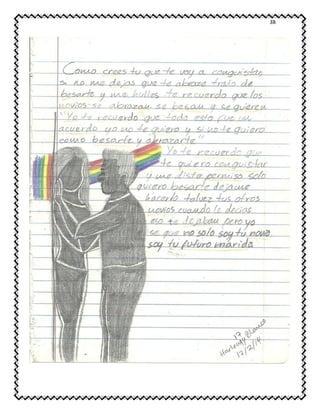 38
Como crees tu que te voy a conquistar
si no me dejas que te abrace trato de
besarte y me hulles te recuerdo que los
novios se abrazan se besan y se quieren
"Yo te recuerdo que todo esto fue un
acuerdo yo no te quiero y si no te quiero
como besarte y abrazarte"
Yo te recuerdo que
te quiero conquistar
y me diste permiso solo
quiero besarte dejame
hacerlo talvez tus otros
novios cuando le decias
eso te dejaban pero yo
se que no solo soy tu novio
soy tu futuro marido
17
17/2/14